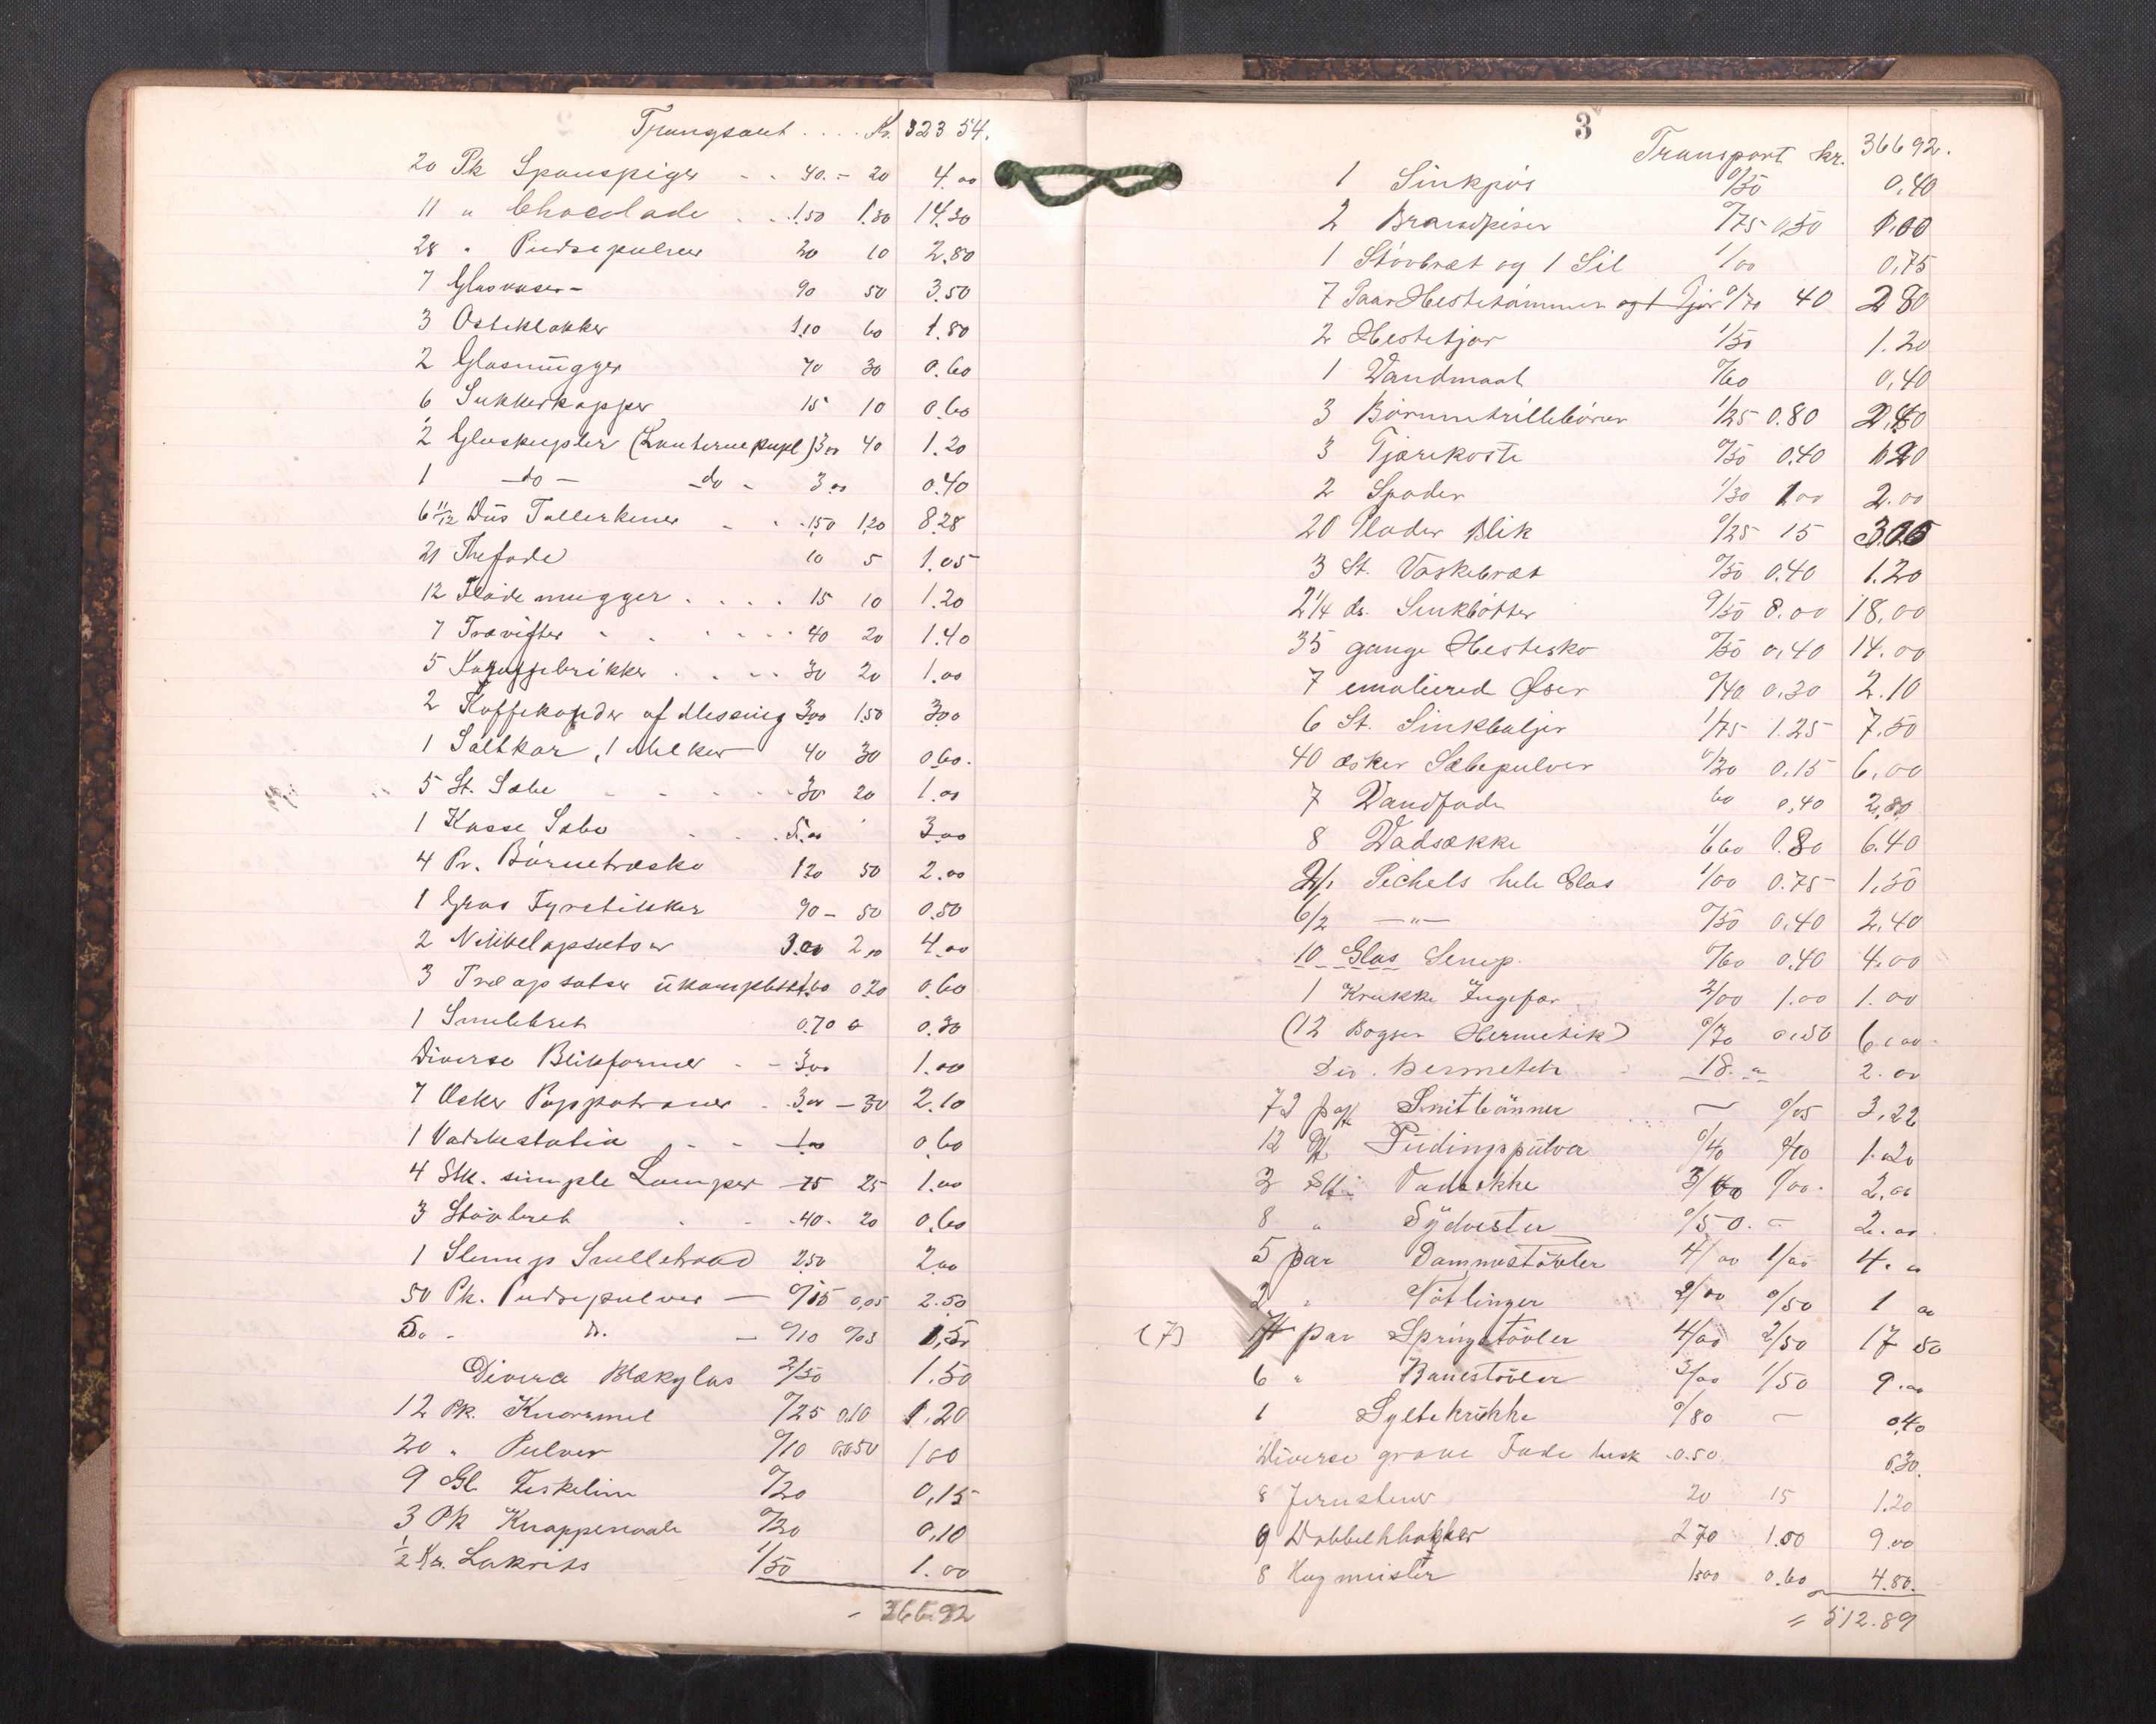 Transport .... Kr. 323 54.
20 Pk Spanspiger - - 40. - 20 4.00
11 " Chocolade . . 1.50 1.30 14.30
28 " Pudsepulver 20 10 2.80
7 Glasvaser - 90 50 3.50
3 Osteklokker 1.10 60 1.80
2 Glasmugger 70 30 0.60
6 Sukkerkopper 15 10 0.60
2 Glaskupler (Lanternekupl) 3.00 40 1.20
1 - do - - do - 3.00 0.40
6 11/12 Dus Tallerkener - . . 1.50 1.20 8.28
21 Thefade 10 5 1.05
12 Flødemugger . . . . 15 10 1.20
7 Trævifter - . . . . . 40 20 1.40
5 brikker . . . . 30 20 1.00
2 Kaffekander af Messing 3.00 1.50 3.00
1 Saltkar, 1 40 30 0.60.
5 St. Sæbe - - - - - 30 20 1.00
1 Kasse Sæbe . . . 5.00 3.00
4 Pr. Börnetræsko 120 50 2.00
1 Gros Fyrstikker 90 - 50 0.50
2 Nikkelopsatser 3.00 2.00 4.00
3 Træopsatser ukomplett 1.60 0.20 0.60
1 Smulebret 0.70 0.30
Diverse Blikformer - - 3.00 1.00
7 Æsker . 3.00 - 30 2.10
1 . - - 1.00 0.60
4 Stk. simple Lamper - 75 25 1.00
3 Stövbret . . - 40 - 20 0.60
1 Slump 2.50 2.00
50 Pk. Pudsepulver - 0/15 0,05 2.50
50 - do. - 0/10 0/03 1,50
Diverse Blækglas 2/50 1.50
12 Pk. Knorrmel 0/25 0.10 1.20
20 " Pulver 0/10 0.050 1 00
9 Gl. Fiskelim 0/20 0,15
3 Pk Knappenaale 0/20 0,10
1/2 Kr. Lakrits 1/50 1.00
- 366.92
3
Transport kr. 366 92.
1 Sinkpös 0/50 0,40
2 Brandpiser 0/75 0,50 1.00
1 Stövbræt og 1 Sil 1/00 0,75
7 Paar Hestekammer og 1 Tjor 0/70 40 2 80
2 Hestetjor 1/50 1.20
1 Vandmaal 0/60 0,40
3 Börnetrillebörer 1/25 0.80 2.40
3 Tjærekoste 0/50 0.40 1 20
2 Spader 1/30 1 00 2.00
20 Plader Blik 0/25 15 3.00
3 St. Vaskebræt 0/50 0.40 1.20
2 1/4 ds. Sinkbötter 0/50 8.00 18,00
35 gange Hestesko 0/50 0,40 14.00
7 emaliered Øser 0/40 0,30 2.10
6 St. Sinkbaljer 1/75 1.25 7,50
40 æsker Sæbepulver 0/20 0,15 6,00
7 Vandfade 60 0,40 2,80
8 Vadsække 1/60 0.80 6.40
2/1 Pichels hele Glas 1/00 0.75 1,50
6/2 - " - 0/50 0,40 2,40
10 Glas Senep. 0/60 0,40 4.00
1 Krukke Ingefær 2/00 1.00 1.00
(12 Bogser Hermetik) 0/70 0,50 6,00
Div. Hermetik - 18. " 2.00
72 pak 0/05 3,22
12 Pk Püdingspülver 0/40 0/10 1.20
2 Stk. Vadsække 3/00 1/00. 2.00
8 " Sydvester 0/50. - 2.00
5 par Damestövler 4/00 1/00 4. "
2 " 2/00 0/50 1 00
(7) par Springstövler 4/00 2/50 17 50
6 " Barnestövler 3/00 1/50 9.00
1 Syltekrukke 0/80 - 0,40
Diverse graae Fade 0.50 0.30
8 Jernstener 20 15 1.20
9 Dobbelthakker 2 70 1.00 9.00
8 1.00 0.60 4.80.
= 512.89